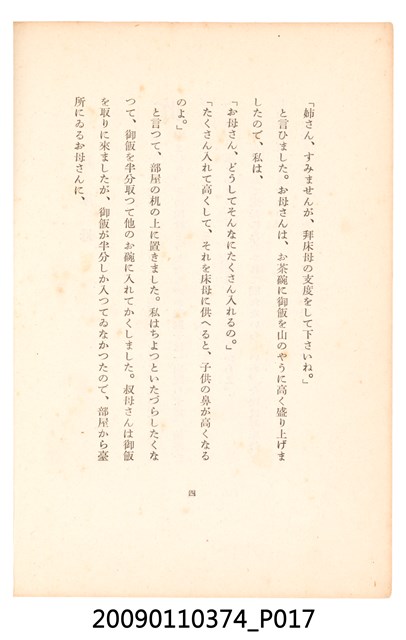 「姉さん、すみませんが、拜床母の支度をして下さいね。」
と言ひました。お母さんは、お茶碗に御飯を山のやうに高く盛り上げま
したので、私は、
「お母さん、どうしてそんなにたくさん入れるの。」
「たくさん入れて高くして、それを床母に供へると、子供の鼻が高くなる
のよ。」
と言つて、部屋の机の上に置きました。私はちよつといたづらしたくな
つて、御飯を半分取つて他のお碗に入れてかくしました。叔母さんは御飯
を取りに來ましたが、御飯が半分しか入つてゐなかつたので、部屋から臺
所にゐるお母さんに、
四
20090110374_P017